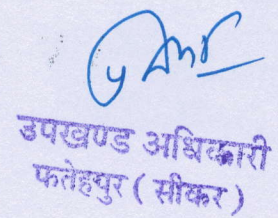 उपखण्ड अधिकारी
फतेहपुर ( सीकर )